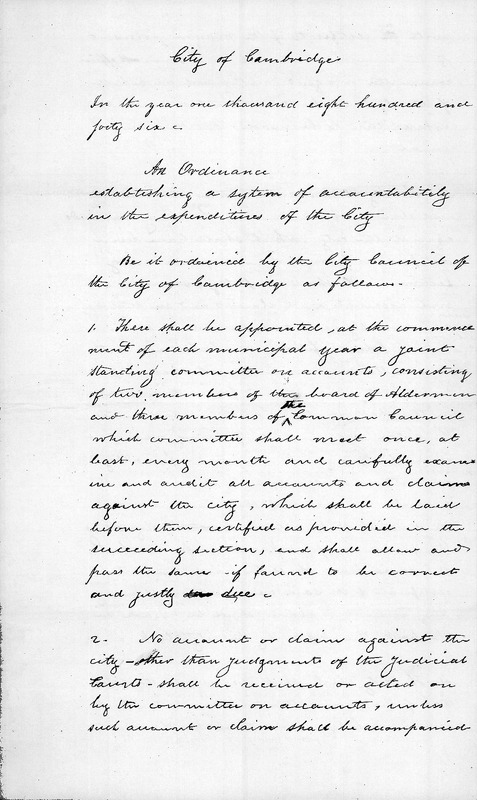 City of Cambridge
In the year one thousand eight hundred and
forty six
An Ordinance
establishing a system of accountability
in the expenditures of the City
Be it ordained by the City Council of
the City of Cambridge as follows -
1. There shall be appointed, at the commence
ment of each municipal year a joint
standing committee on accounts, consisting
of two members of the board of Aldermen
and three members of the Common Council
which committee shall meet once, at
least, every month and carefully exam
ine and audit all accounts and claims
against the city, which shall be laid
before them, certified as provided in the
succeeding section, and shall allow and
pass the same if found to be correct
and justly due
2 - No account or claim against the
city - other than judgments of the Judicial
Courts - shall be received or acted on
by the committee on accounts, unless
such account or claim shall be accompanied